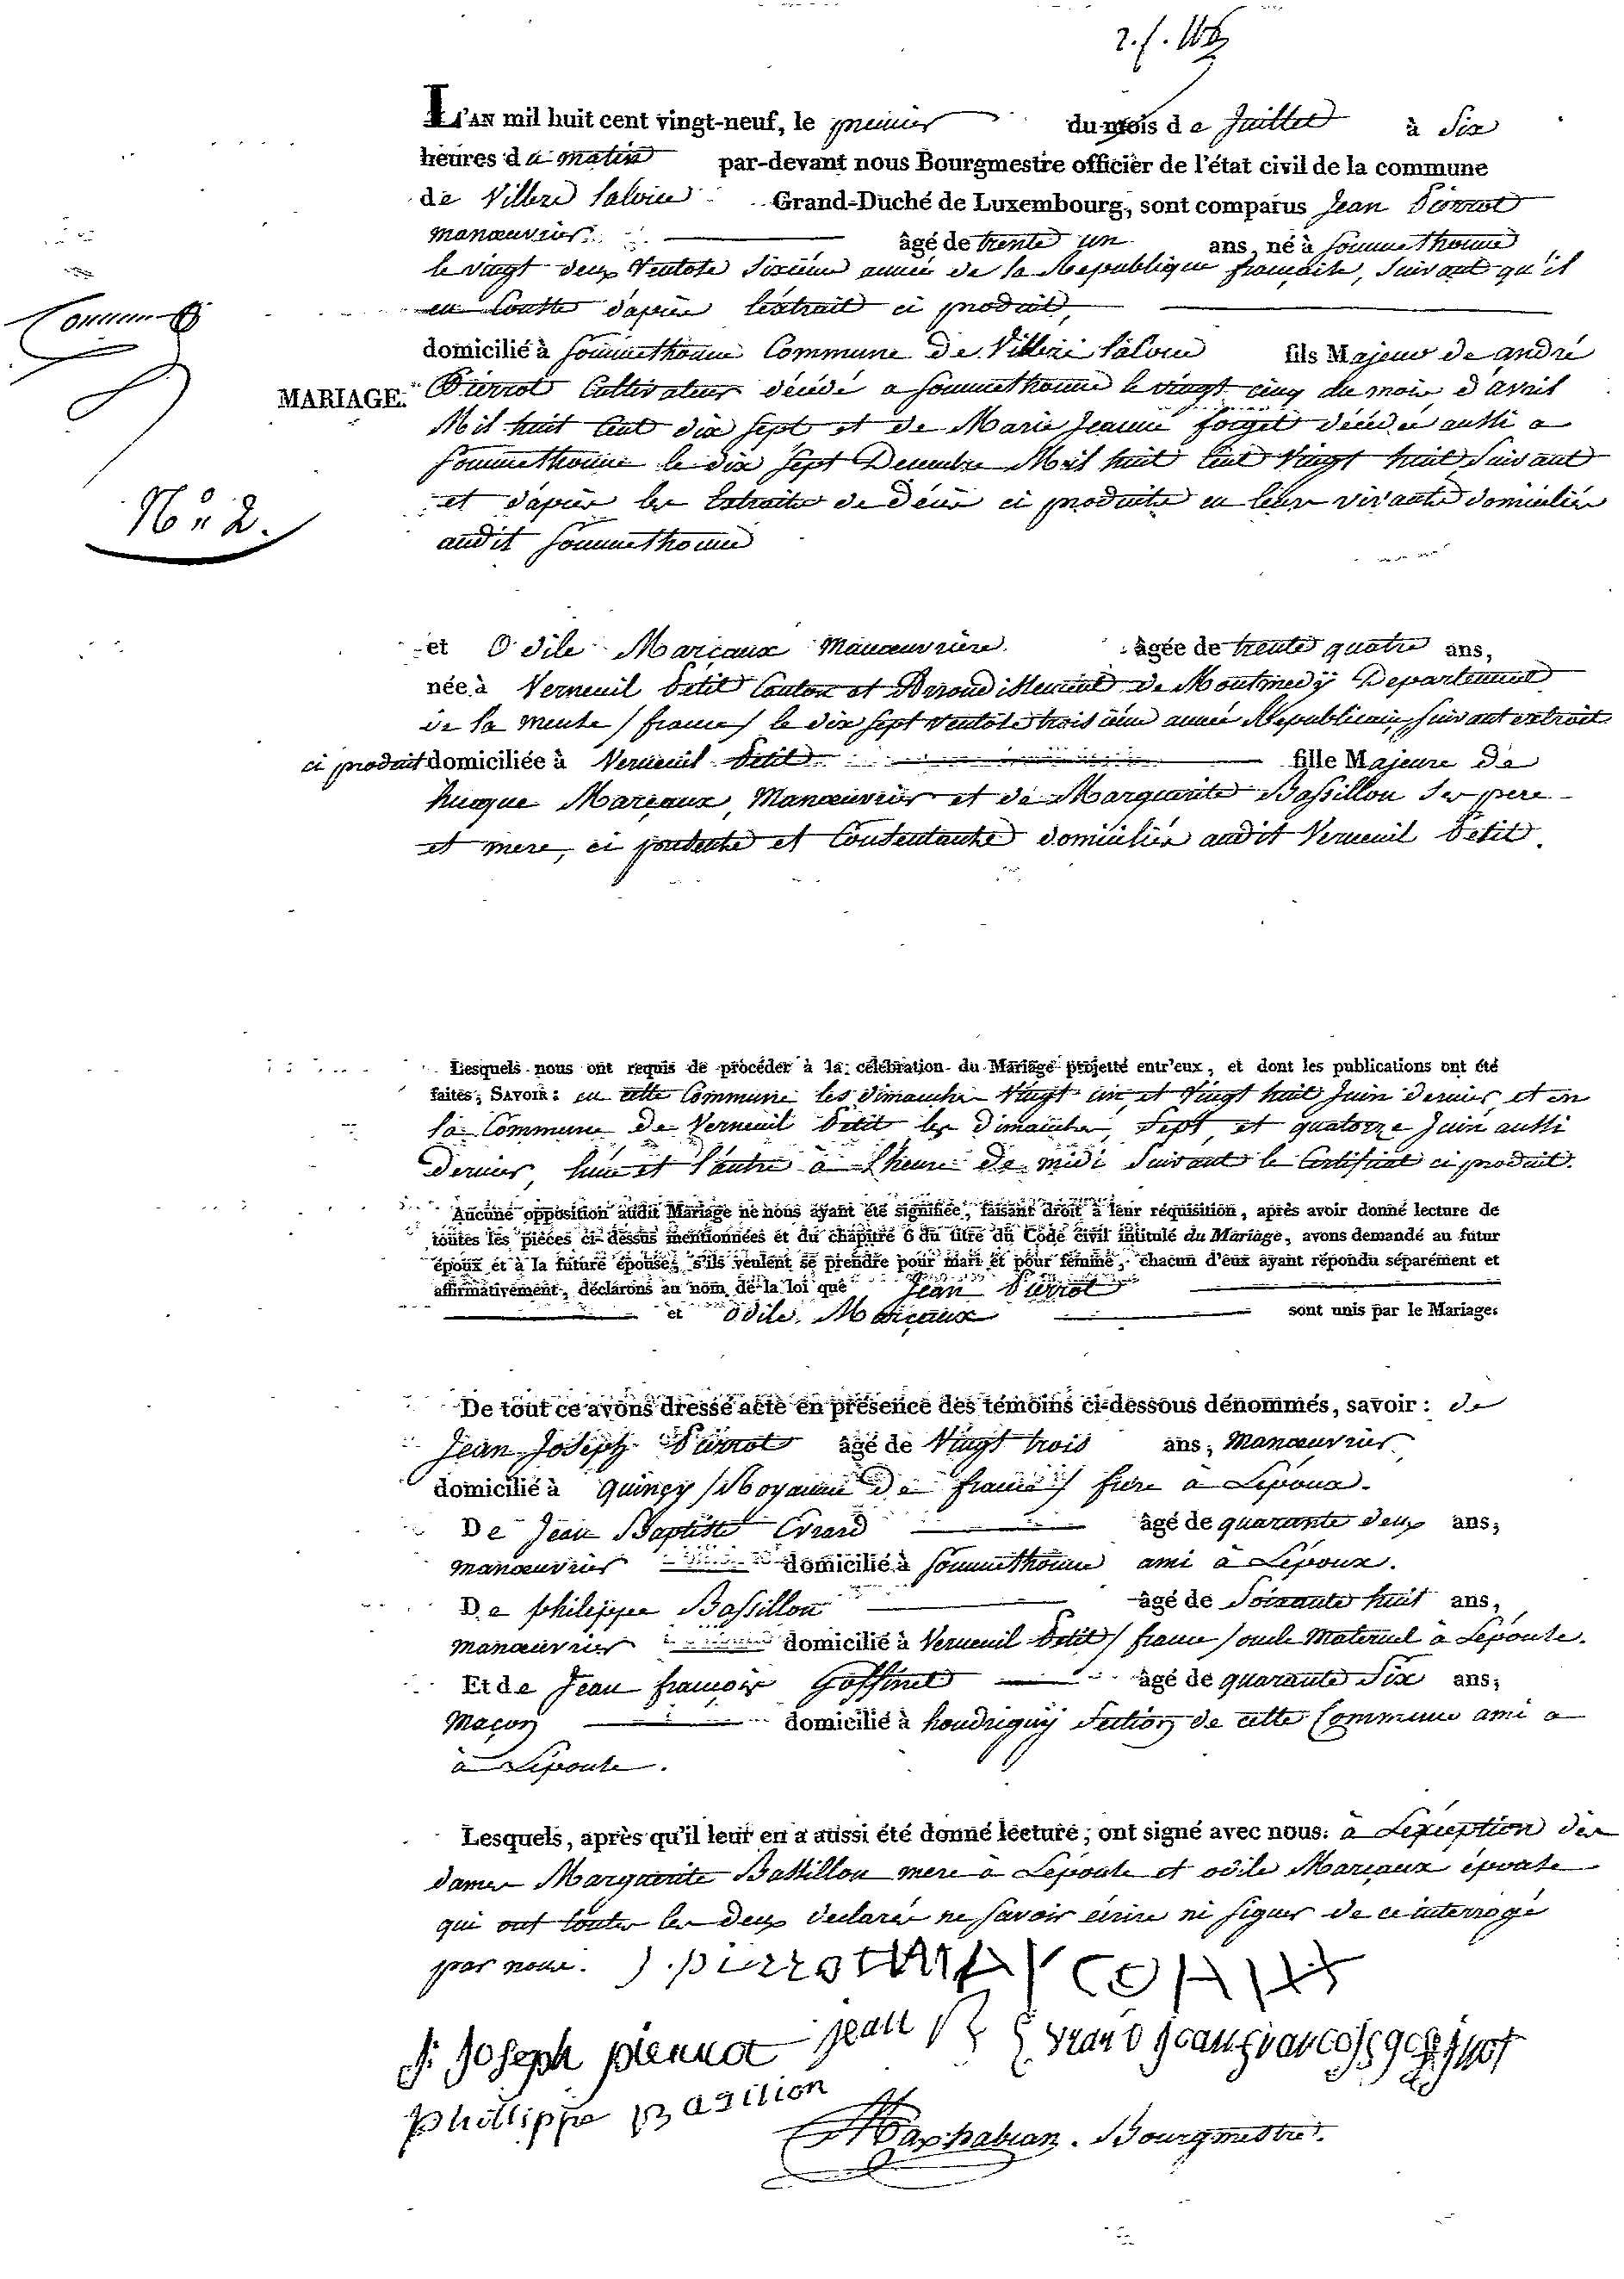 L'AN mil huit cent vingt-neuf, le premier du mois de Juillet à Six
heures du matin par-devant nous Bourgmestre officier de l'état civil de la commune
de Villers Laloue Grand-Duché de Luxembourg, sont comparus Jean Pierrot
manœuvrier âgé de trente un ans, né à Sommethonne
le vingt deux Ventose Sixième année de la République française, Suivant qu'il
en Conste d'après l'extrait ci produit,
domicilié à Sommethonne Commune de Villers laloue fils Majeur de andré
MARIAGE. Pierrot Cultivateur décédé a Sommethonne le vingt cinq du mois d'avril
Mil huit Cent dix Sept et de Marie Jeanne forget décédée aussi a
Sommethonne le dix Sept Decembre Mil huit Cent Vingt huit Suivant
et d'après les Extraits de Décès ci produits en leur vivants domiciliés
N° 2.
audit Sommethonne
et Odile Marçaux Manœuvrière âgée de trente quatre ans,
née à Verneuil Petit Canton et Arrondissement de Montmedÿ Departement
de la Meuse / france / le dix Sept Ventose troisième année Republicain, Suivant extrait
ci produit domiciliée à Verneuil Petit fille Majeure de
Marçaux, Manœuvrier et de Marguerite Bassillon Ses père
et mere, ci présents et Consentants domiciliés audit Verneuil Petit.
Lesquels nous ont requis de procéder à la célébration du Mariage projetté entr'eux, et dont les publications ont été
faites, SAVOIR : en cette Commune les dimanches Vingt un et Vingt huit Juin dernier, et en
la Commune de Verneuil Petit les dimanches, Sept et quatorze Juin aussi
dernier, l'une et l'autre à l'heure de midi Suivant le Certificat ci produit.
Aucune opposition audit Mariage ne nous ayant été signifiée, faisant droit à leur réquisition, après avoir donné lecture de
toutes les pièces ci-dessus mentionnées et du chapitre 6 du titre du Code civil intitulé du Mariage, avons demandé au futur
époux et à la future épouse, s'ils veulent se prendre pour mari et pour femme, chacun d'eux ayant répondu séparément et
affirmativement, déclarons au nom de la loi que Jean Pierrot
et Odile Marçaux sont unis par le Mariage.
De tout ce avons dressé acte en présence des témoins ci-dessous dénommés, savoir : de
Jean Joseph Pierrot âgé de Vingt trois ans, Manœuvrier
domicilié à Quinçy / Royaume De france / frere a Lépoux.
De Jean Baptiste Evrard âgé de quarante deux ans,
manœuvrier domicilié à Sommethonne ami à Lépoux.
De philippe Bassillon âgé de Soixante huit ans,
manœuvrier domicilié à Verneuil Petit / france / oncle Maternel à Lépouse.
Et de Jean françois Goffinet âgé de quarante Six ans,
Maçon domicilié à houdrignÿ Section de cette Commune ami a
à Lépouse.
Lesquels, après qu'il leur en a aussi été donné lecture, ont signé avec nous. à Lexception des
dames Marguerite Bassillon mere à Lépouse et odile Marçaux épouse
qui ont toutes les deux declarées ne Savoir écrire ni signer de ce interrogé
par nous. J. pierrot
j: joseph pierrot jean B Evrard jean francois goffinet
phillippe Basilion
Bourgmestre.